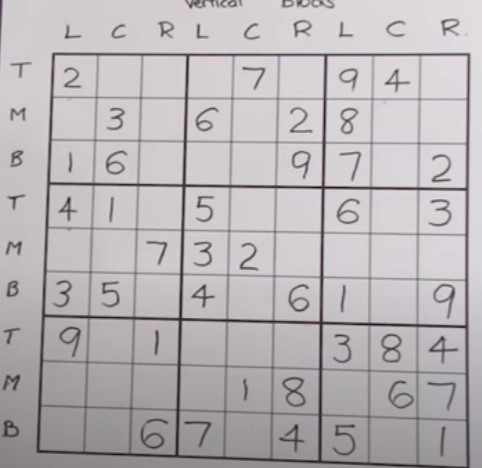 Vertical Blocks
L C R L C R L C R
T 2 7 9 4
M 3 6 2 8
B 1 6 9 7 2
T 4 1 5 6 3
M 7 3 2
B 3 5 4 6 1 9
T 9 1 3 8 4
M 1 8 6 7
B 6 7 4 5 1